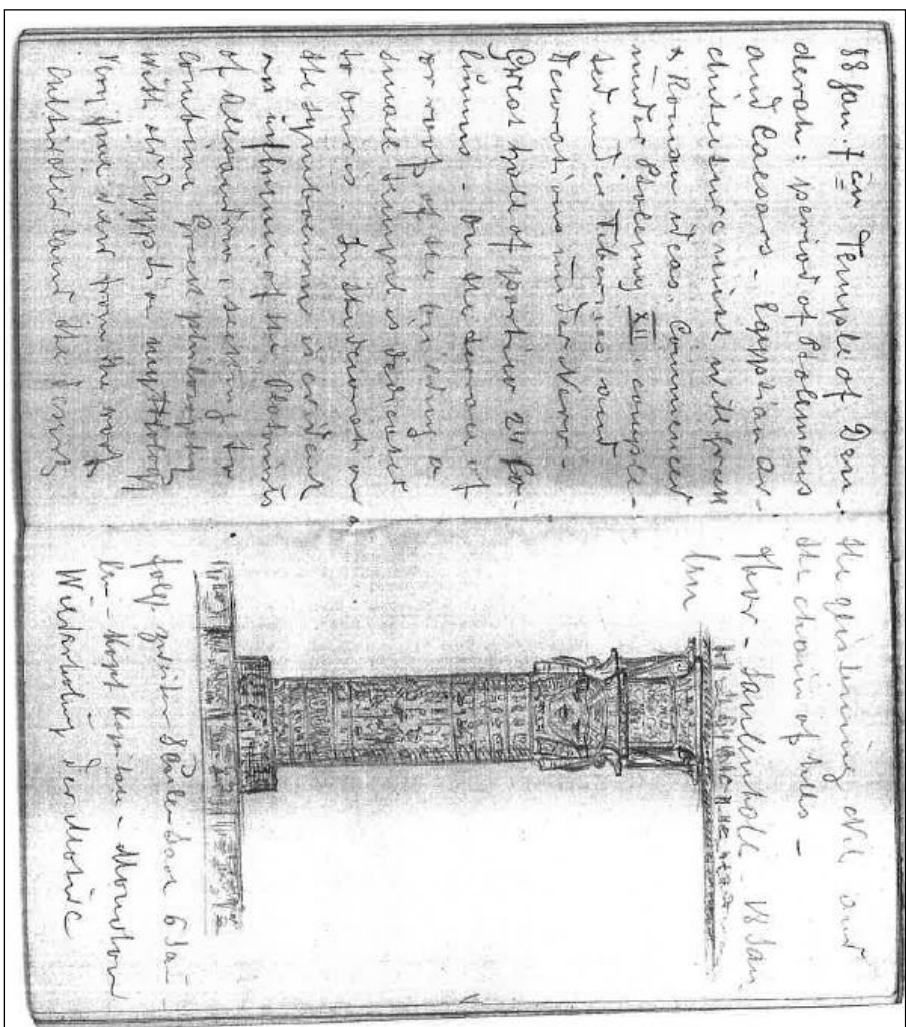 88 Jan. 7 Temple of Den-
derah: period of Ptolemeus
and Caesars - Egyptian ar-
chitecture mixt with greek
& Roman ideas. Commenced
under Ptolemy XII. comple-
ted under Tiberius and
Decorations under Nero -
Great hall of portico 24 Co-
lumns - on the terrace of
or roof of the building a
small temple is dedicated
to Osiris. In the decorations
the symbolism is evident
an influence of the Platonists
of Alexandria, seeking to
combine Greek philosophy
with Egyptian mythology
Very fine view from the roof
cultivated land the desert
the glistening Nil and
the chain of hills -
Thor - Säulenhalle - 18 Säu
len
folgt zweiter Säulensaal 6 Säu-
len - Kopf Kapitäle - Monoton
Wiederholung der Motive